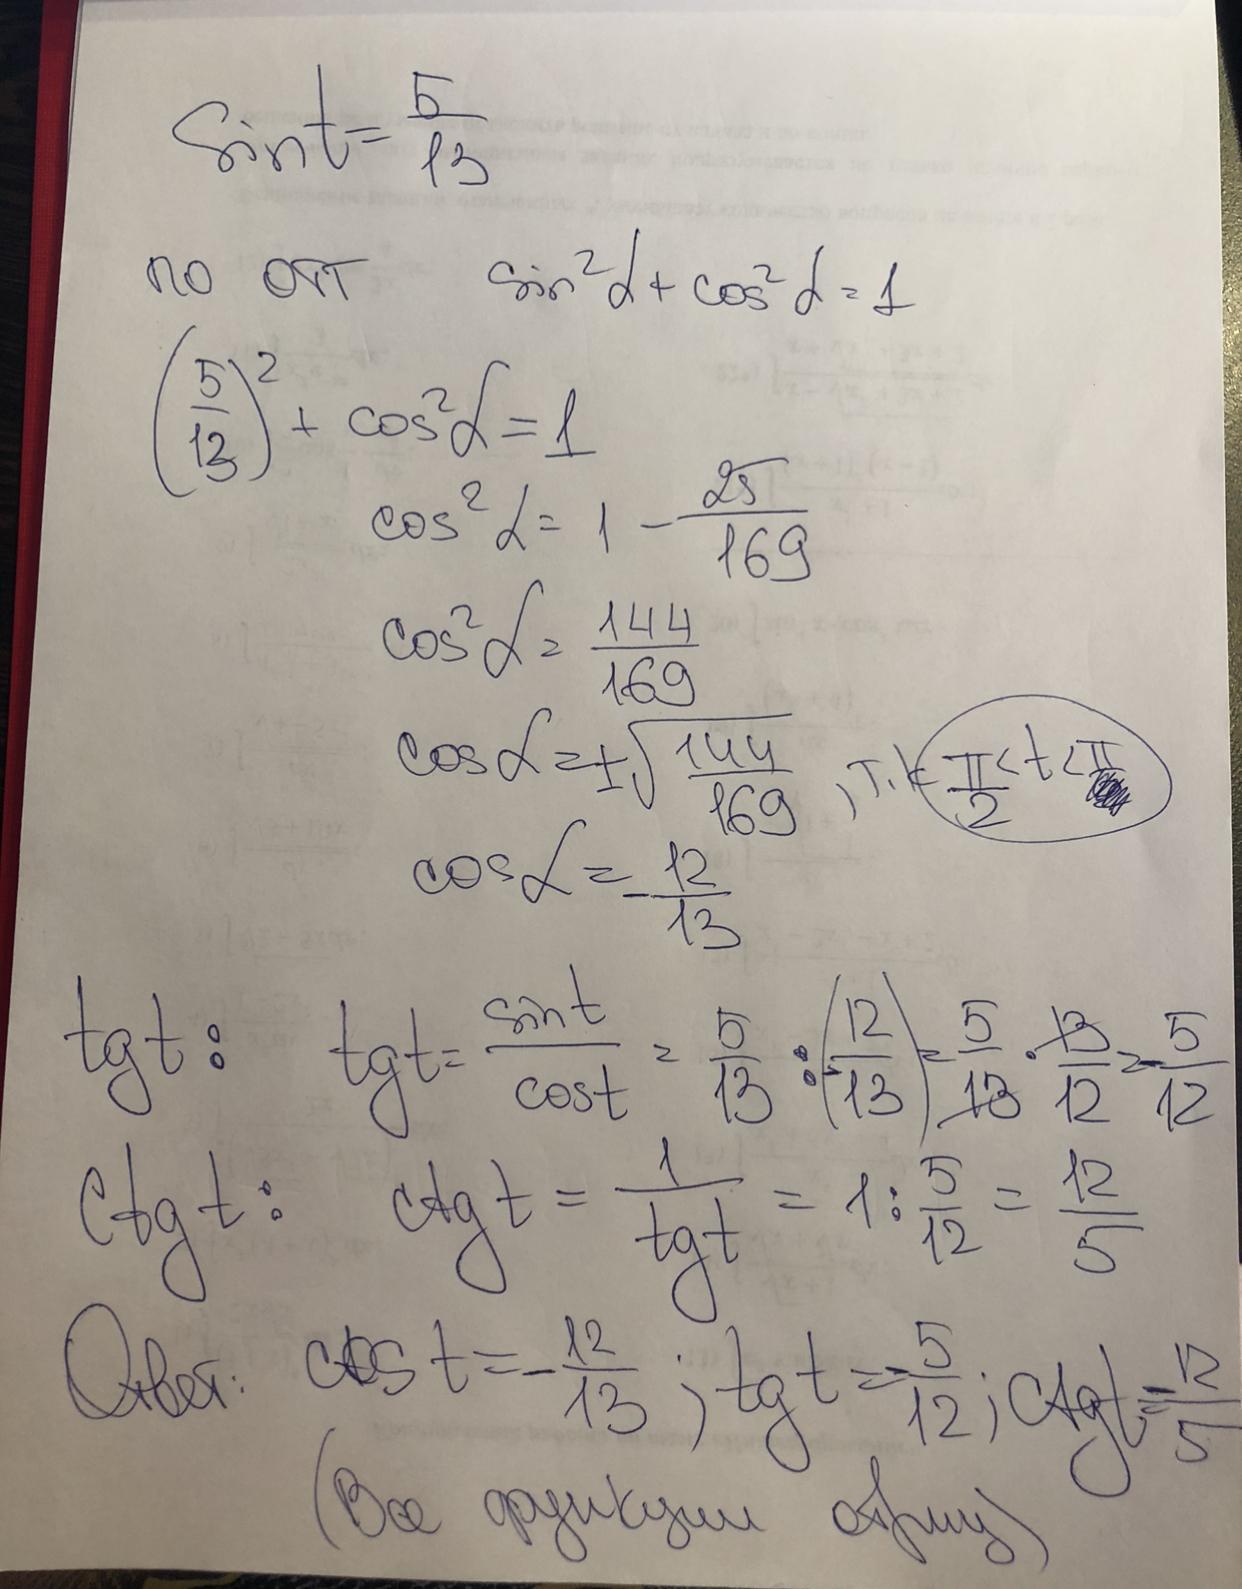 sin t = 5/13
по ОТТ sin²α + cos²α = 1
(5/13)² + cos²α = 1
cos²α = 1 - 25/169
cos²α = 144/169
cosα = ±√(144/169) , т.к π/2 < t < π
cosα = -12/13
tg t : tg t = sin t / cos t = 5/13 : (-12/13) = 5/13 · 13/12 = -5/12
ctg t : ctg t = 1 / tg t = 1 : 5/12 = 12/5
Ответ: cos t = -12/13 ; tg t = -5/12 ; ctg t = -12/5
(Все функции отриц)